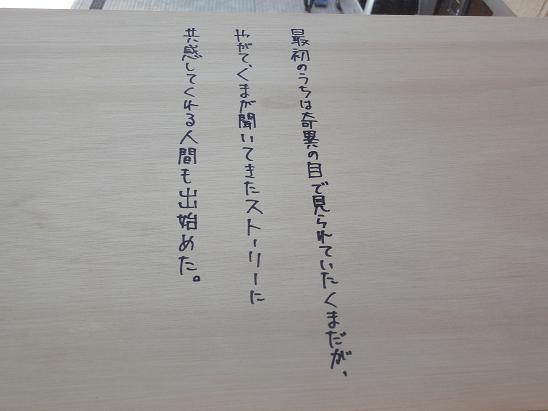 最初のうちは奇異の目で見られていたくまだが、
やがて、くまが聞いてきたストーリーに
共感してくれる人間も出始めた。